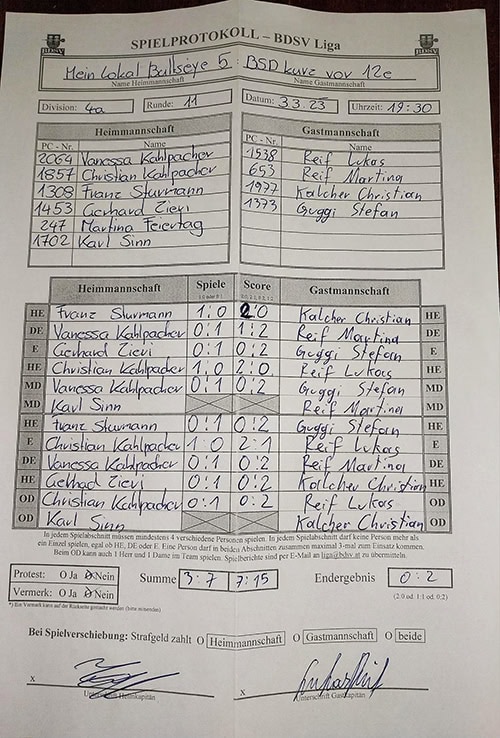 SPIELPROTOKOLL – BDSV Liga
BDSV BDSV
Mein Lokal Bullseye 5 : BSD kurz vor 12e
Name Heimmannschaft Name Gastmannschaft
Division: 4a Runde: 11 Datum: 3.3.23 Uhrzeit: 19:30
Heimmannschaft Gastmannschaft
PC - Nr. Name PC - Nr. Name
2064 Vanessa Kahlpacher 1538 Reif Lukas
1857 Christian Kahlpacher 653 Reif Martina
1308 Franz Sturmann 1977 Kalcher Christian
1453 Gerhard Zievi 1373 Guggi Stefan
247 Martina Feiertag
1702 Karl Sinn
Heimmannschaft Spiele Score Gastmannschaft
HE Franz Sturmann 1:0 2:0 Kalcher Christian HE
DE Vanessa Kahlpacher 0:1 1:2 Reif Martina DE
E Gerhard Zievi 0:1 0:2 Guggi Stefan E
HE Christian Kahlpacher 1:0 2:0 Reif Lukas HE
MD Vanessa Kahlpacher 0:1 0:2 Guggi Stefan MD
MD Karl Sinn Reif Martina MD
HE Franz Sturmann 0:1 0:2 Guggi Stefan HE
E Christian Kahlpacher 1:0 2:1 Reif Lukas E
DE Vanessa Kahlpacher 0:1 0:2 Reif Martina DE
HE Gerhad Zievi 0:1 0:2 Kalcher Christian HE
OD Christian Kahlpacher 0:1 0:2 Reif Lukas OD
OD Karl Sinn Kalcher Christian OD
In jedem Spielabschnitt müssen mindestens 4 verschiedene Personen spielen. In jedem Spielabschnitt darf keine Person mehr als
ein Einzel spielen, egal ob HE, DE oder E. Eine Person darf in beiden Abschnitten zusammen maximal 3-mal zum Einsatz kommen.
Beim OD kann auch 1 Herr und 1 Dame im Team spielen. Spielberichte sind per E-Mail an liga@bdsv.at zu übermitteln.
Protest: O Ja O Nein Summe 3:7 7:15 Endergebnis 0:2
Vermerk: O Ja O Nein (2:0 od. 1:1 od. 0:2)
*) Ein Vermerk kann auf der Rückseite gemacht werden (bitte ankreuzen)
Bei Spielverschiebung: Strafgeld zahlt O Heimmannschaft O Gastmannschaft O beide
x x
Unterschrift Heimkapitän Unterschrift Gastkapitän